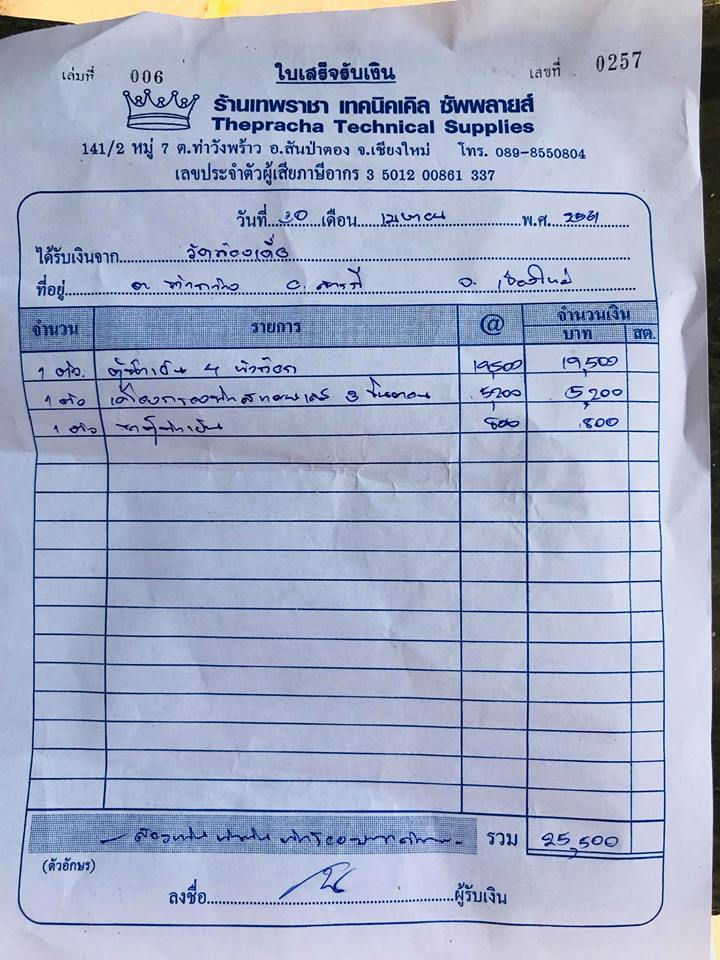 เล่มที่ 006 ใบเสร็จรับเงิน เลขที่ 0257
ร้านเทพราชา เทคนิคเคิล ซัพพลายส์
Thepracha Technical Supplies
141/2 หมู่ 7 ต.ท่าวังพร้าว อ.สันป่าตอง จ.เชียงใหม่ โทร. 089-8550804
เลขประจำตัวผู้เสียภาษีอากร 3 5012 00861 337
วันที่ 20 เดือน เมษายน พ.ศ. 2561
ได้รับเงินจาก
ที่อยู่ ต. อ. สารภี จ. เชียงใหม่
จำนวน รายการ @ จำนวนเงิน
บาท สต.
1 ตัว. ตู้น้ำเย็น 4 หัวก๊อก 19,500 19,500
1 ตัว เครื่องกรองน้ำสแตนเลส 3 ขั้นตอน 5,200 5,200
1 ตัว 800 800
รวม 25,500
(ตัวอักษร)
ลงชื่อ ผู้รับเงิน